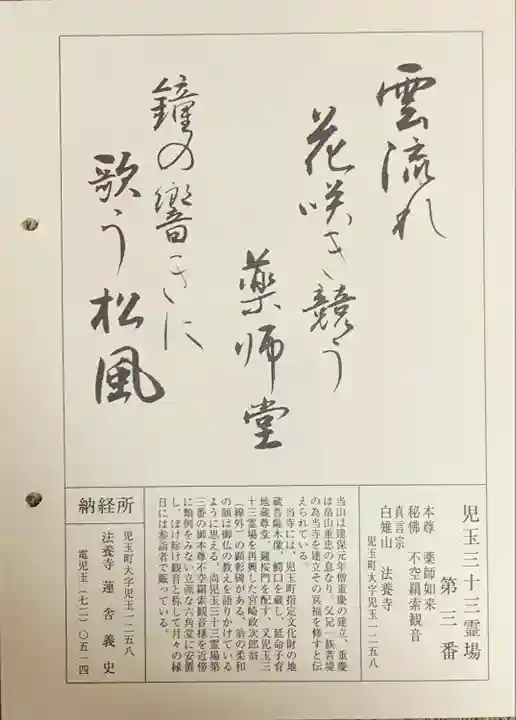 雲流れ
花咲き競う
薬師堂
鐘の響きに
歌う松風
児玉三十三霊場
第三番
本尊 薬師如来
秘佛 不空羂索観音
真言宗
白雉山 法養寺
児玉町大字児玉一二五八
当山は建保元年僧重慶の建立、重慶
は畠山重忠の息なり。父兄一族菩堤
の為当寺を建立その冥福を修すと伝
えられている。
当寺には、児玉町指定文化財の地
蔵菩薩木像、鰐口を蔵し、延命子育
地蔵尊堂、鐘桜門を配す、又児玉三
十三霊場を再興した宮崎政次郎翁
「線外」の顕彰碑がある、翁の柔和
の顔は御仏の教えを語りかけている
ように思える。尚児玉三十三霊場第
三番の御本尊不空羂索観音様を近傍
に類例をみない立派な六角堂に安置
し、ぼけ除け観音と称して月々の縁
日には参詣者で賑っている。
納経所
児玉町大字児玉一二五八
法養寺 蓮舎義史
電児玉(七二)〇五一四